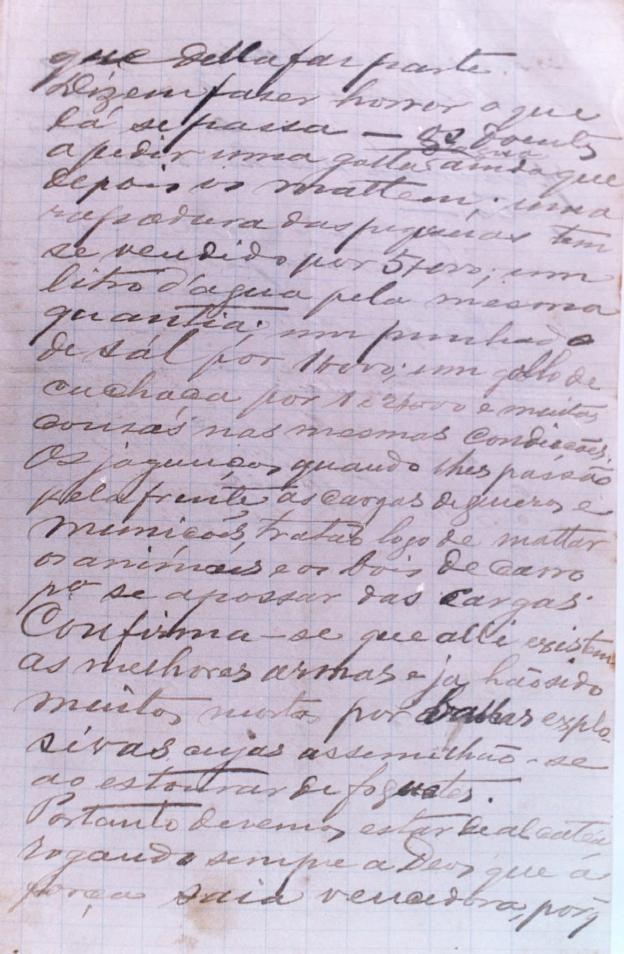 que della faz parte.
Dizem fazer horror o que
lá se passa — os doentes
a pedir uma gotta d'agua ainda que
depois os mattem; uma
rapadura das pequenas tem
se vendido por 5$000; um
litro d'agua pela mesma
quantia; um punhado
de sál por 1$000; um golle de
cachaça por 1 e 2$000 e muitas
cousas nas mesmas condicções.
Os jagunços quando lhes passão
pela frente as cargas de generos e
municóes, tratão logo de mattar
os animáes e os bois de carro
pª se apossar das cargas.
Confirma-se que alli existem
as melhores armas e ja hão sido
muitos mortos por ballas explo-
sivas cujas assemilhão-se
ao estourar de foguetes.
Portanto devemos estar de alcatéa
rogando sempre a Deos que á
força saia vencedora, porq